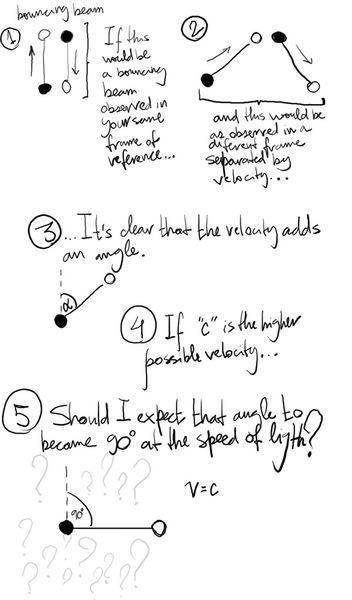 bouncing beam
1
If this
would be
a bouncing
beam
observed in
your same
frame of
reference...
2
and this would be
as observed in a
different frame
separated by
velocity...
3 ...It's clear that the velocity adds
an angle.
α
4 If "c" is the higher
possible velocity...
5 Should I expect that angle to
became 90° at the speed of ligth?
? ? ? ? ?
90°
v=c
? ? ? ?
? ? ? ? ?